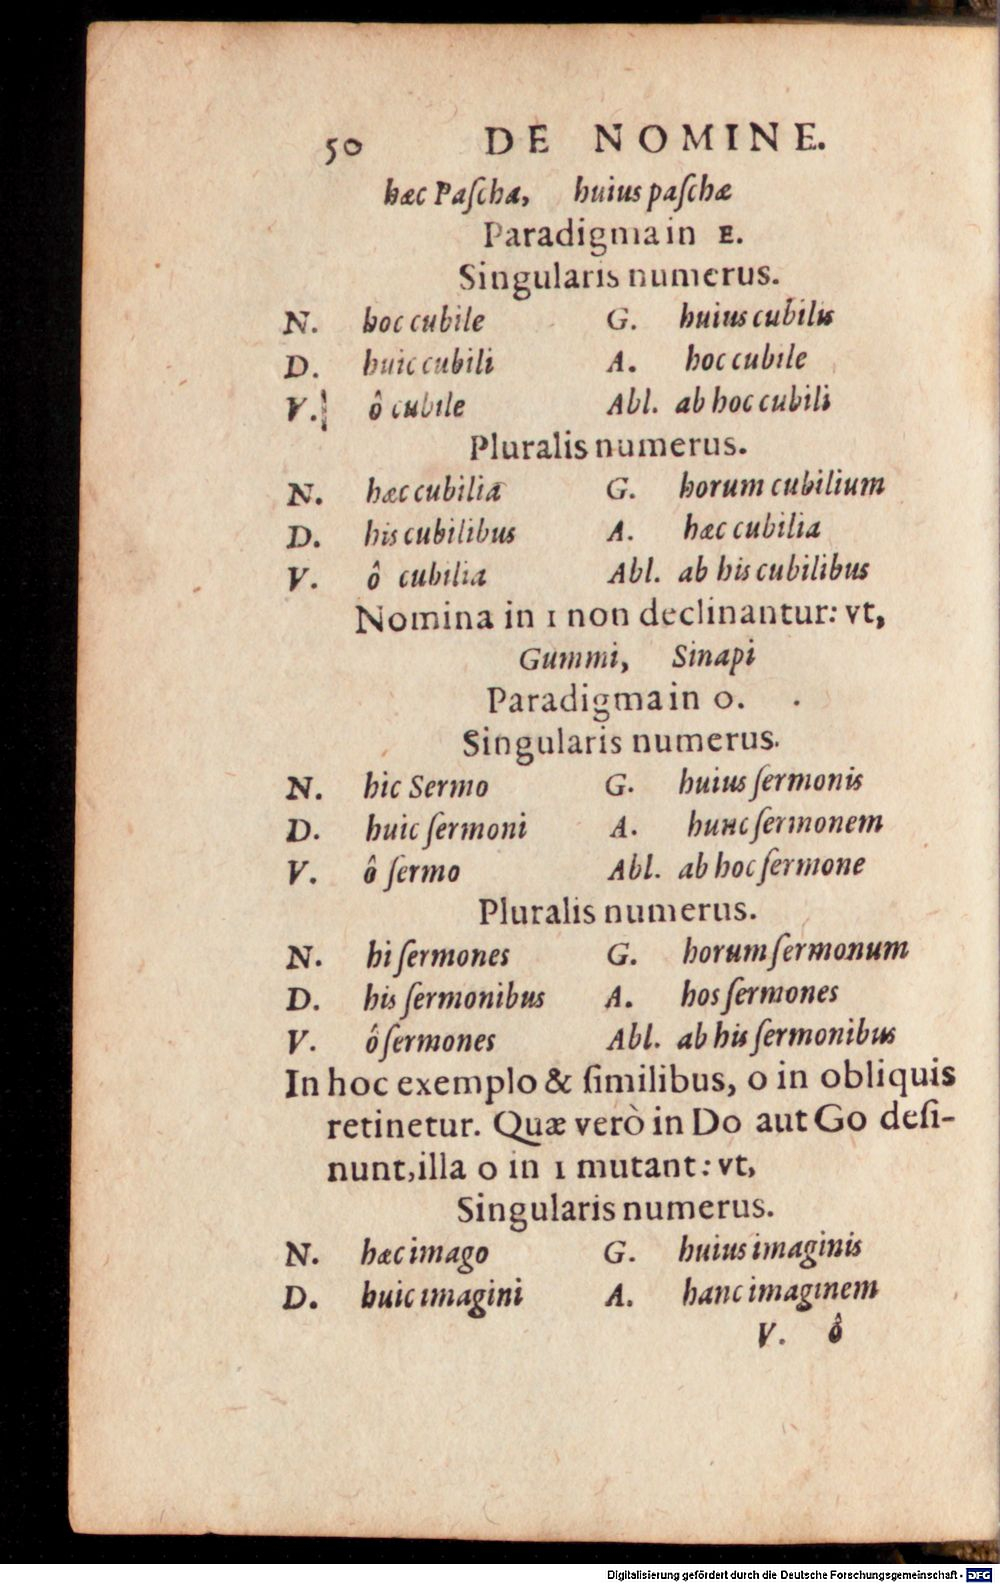 50 DE NOMINE.
hæc Paſcha, huius paſchæ
Paradigma in E.
Singularis numerus.
N. hoc cubile G. huius cubilis
D. huic cubili A. hoc cubile
V. ô cubile Abl. ab hoc cubili
Pluralis numerus.
N. hæc cubilia G. horum cubilium
D. his cubilibus A. hæc cubilia
V. ô cubilia Abl. ab his cubilibus
Nomina in I non declinantur: vt,
Gummi, Sinapi
Paradigma in O.
Singularis numerus.
N. hic Sermo G. huius ſermonis
D. huic ſermoni A. hunc ſermonem
V. ô ſermo Abl. ab hoc ſermone
Pluralis numerus.
N. hi ſermones G. horum ſermonum
D. his ſermonibus A. hos ſermones
V. ô ſermones Abl. ab his ſermonibus
In hoc exemplo & ſimilibus, o in obliquis
retinetur. Quæ verò in Do aut Go deſi-
nunt, illa o in I mutant: vt,
Singularis numerus.
N. hæc imago G. huius imaginis
D. huic imagini A. hanc imaginem
V. ô
Digitalisierung gefördert durch die Deutsche Forschungsgemeinschaft - DFG